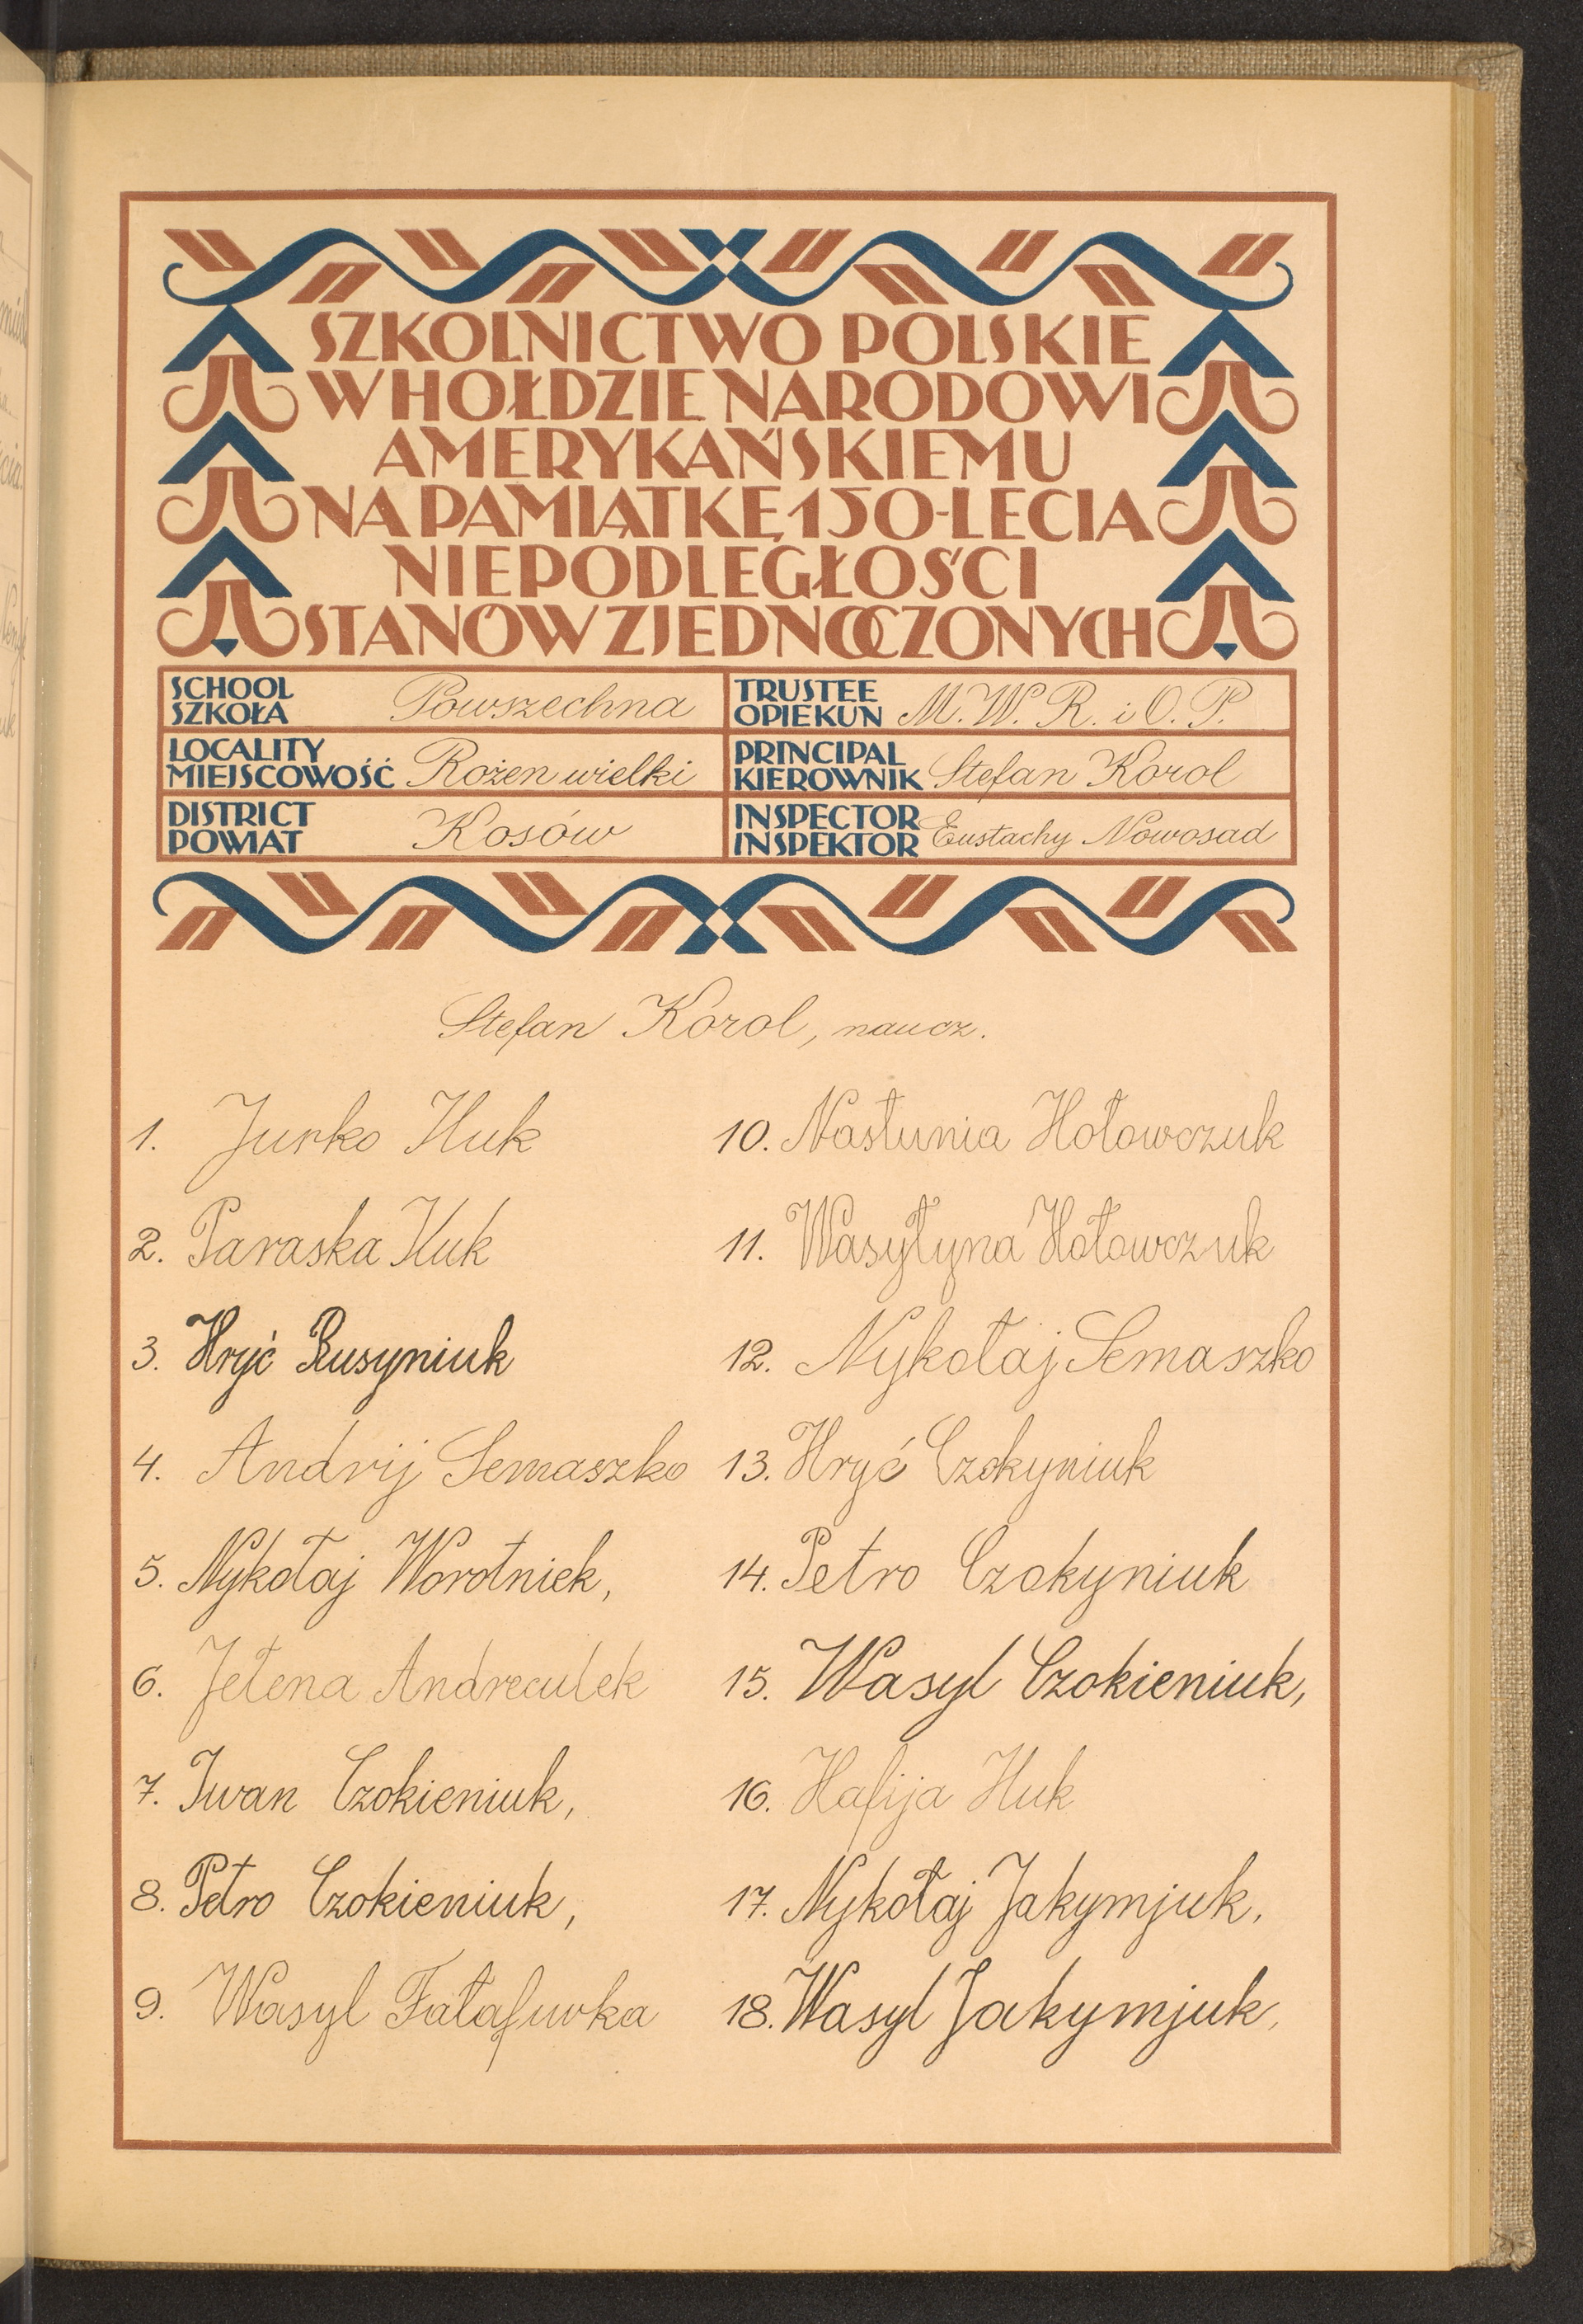 SZKOLNICTWO POLSKIE
W HOŁDZIE NARODOWI
AMERYKAŃSKIEMU
NA PAMIĄTKĘ 150-LECIA
NIEPODLEGŁOŚCI
STANÓW ZJEDNOCZONYCH
SCHOOL
SZKOŁA Powszechna
TRUSTEE
OPIEKUN M. W. R. i O. P.
LOCALITY
MIEJSCOWOŚĆ Rożen wielki
PRINCIPAL
KIEROWNIK Stefan Korol
DISTRICT
POWIAT Kosów
INSPECTOR
INSPEKTOR Eustachy Nowosad
Stefan Korol, naucz.
1. Jurko Huk
2. Paraska Huk
3. Hryć Rusyniuk
4. Andrij Semaszko
5. Nykołaj Worotniek,
6. Jełena Andreculek
7. Iwan Czokieniuk,
8. Petro Czokieniuk,
9. Wasyl Fałafiwka
10. Nastunia Hołowczuk
11. Wasyłyna Hołowczuk
12. Nykołaj Semaszko
13. Hryć Czokyniuk
14. Petro Czokyniuk
15. Wasyl Czokieniuk,
16. Hafija Huk
17. Nykołaj Jakymjuk,
18. Wasyl Jakymjuk,